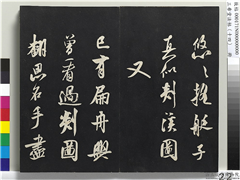 悠悠擢艇子
真似剡溪圖
又
已有扁舟興
曾看過剡圖
翻思名手盡
22